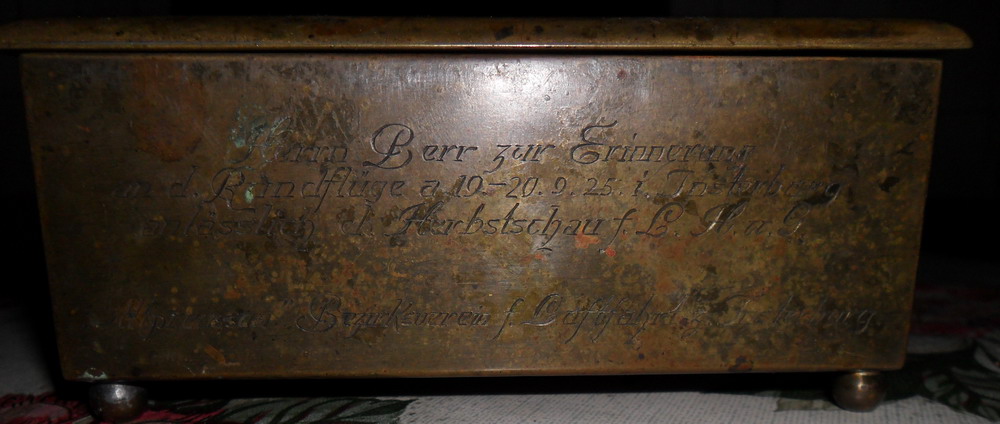 Herrn Berr zur Erinnerung
an d. Rundflüge a. 19.-20. 9. 25. i. Insterburg
anlässlich d. Herbstschau f. L. H. a. G.
Bezirksverein f. Luftfahrt